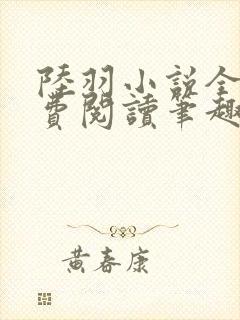 陸羽小説全
費閱讀筆趣
黃春康